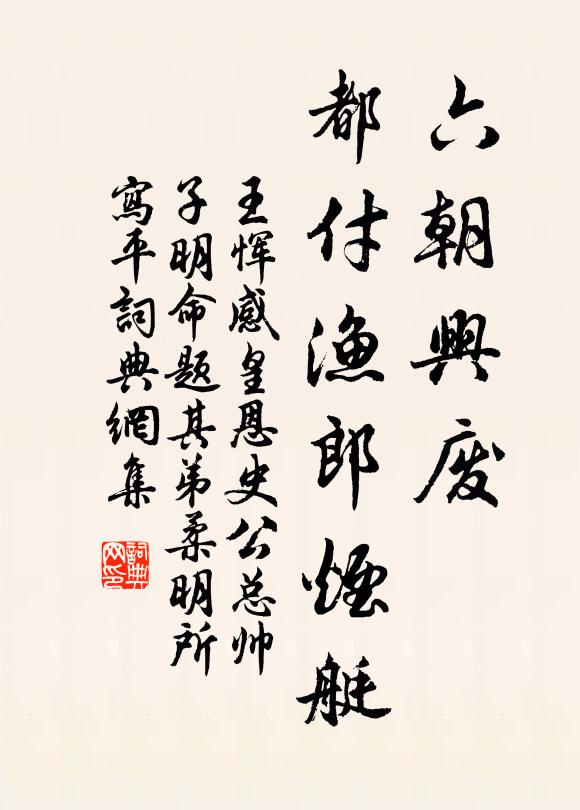 六朝興废
都付漁郎煙艇
王恽感皇恩史公总帅
子明命题其弟柔明所
寫平詞典網集
詞典网印